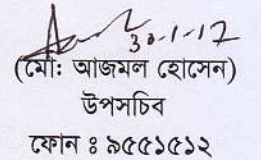 30-1-17
(মোঃ আজমল হোসেন)
উপসচিব
ফোন ঃ ৯৫৫১৫১২